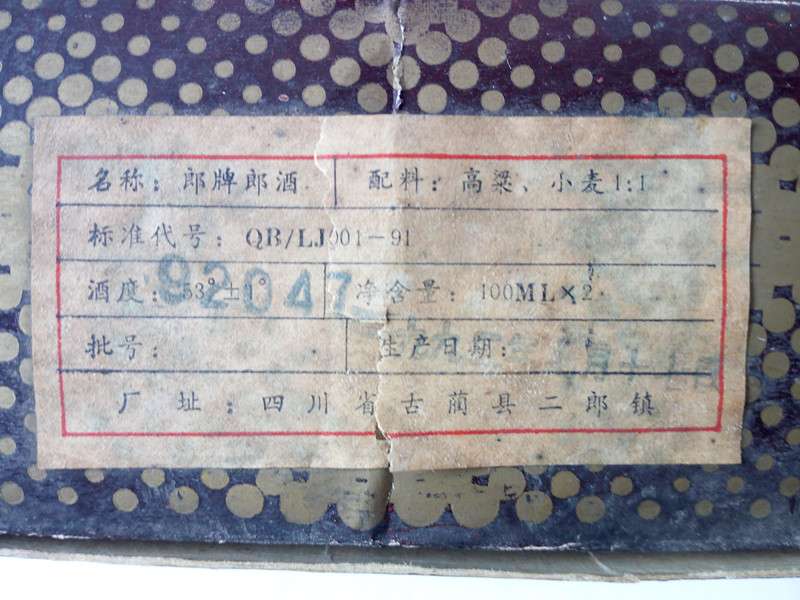 名称：郎牌郎酒 配料：高粱、小麦1:1
标准代号：QB/LJ001-91
酒度：53°±1° 净含量：100ML×2
92047
批号： 生产日期：
厂址：四川省古蔺县二郎镇